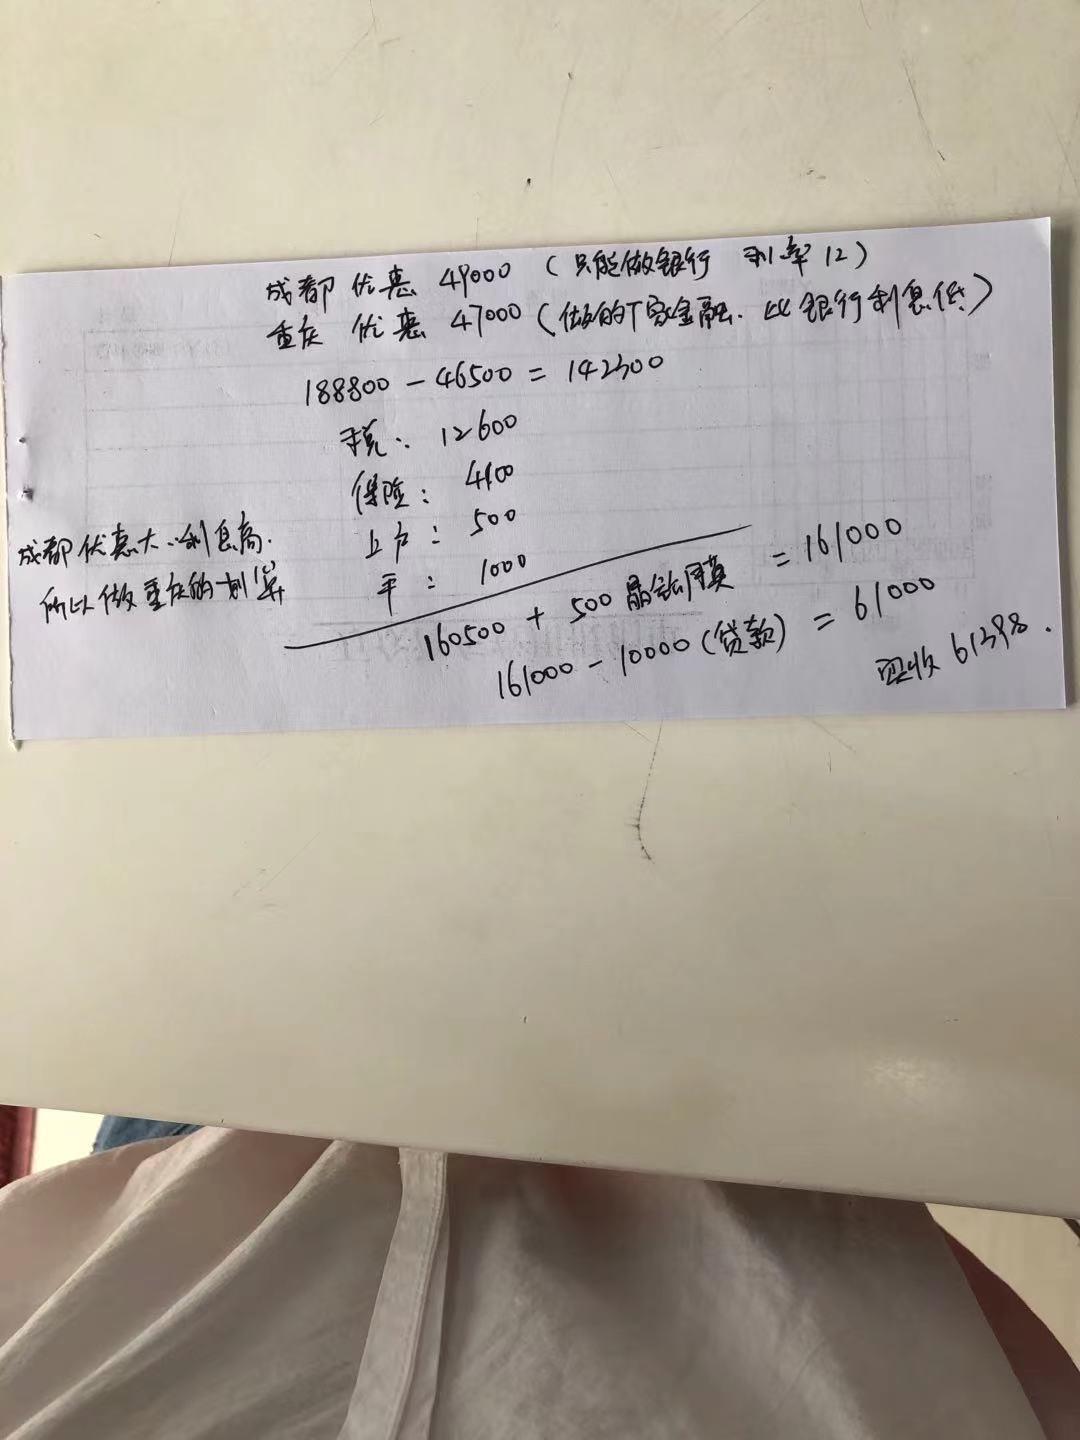 成都 优惠 49000 (只能做银行 利率12)
重庆 优惠 47000 (做的厂家金融. 比银行利息低)
188800 - 46500 = 142300
税: 12600
保险: 4100
上户: 500
平: 1000
成都优惠大.利息高.
所以做重庆的划算
160500 + 500 晶钻膜 = 161000
161000 - 10000 (贷款) = 61000
实收 61398.